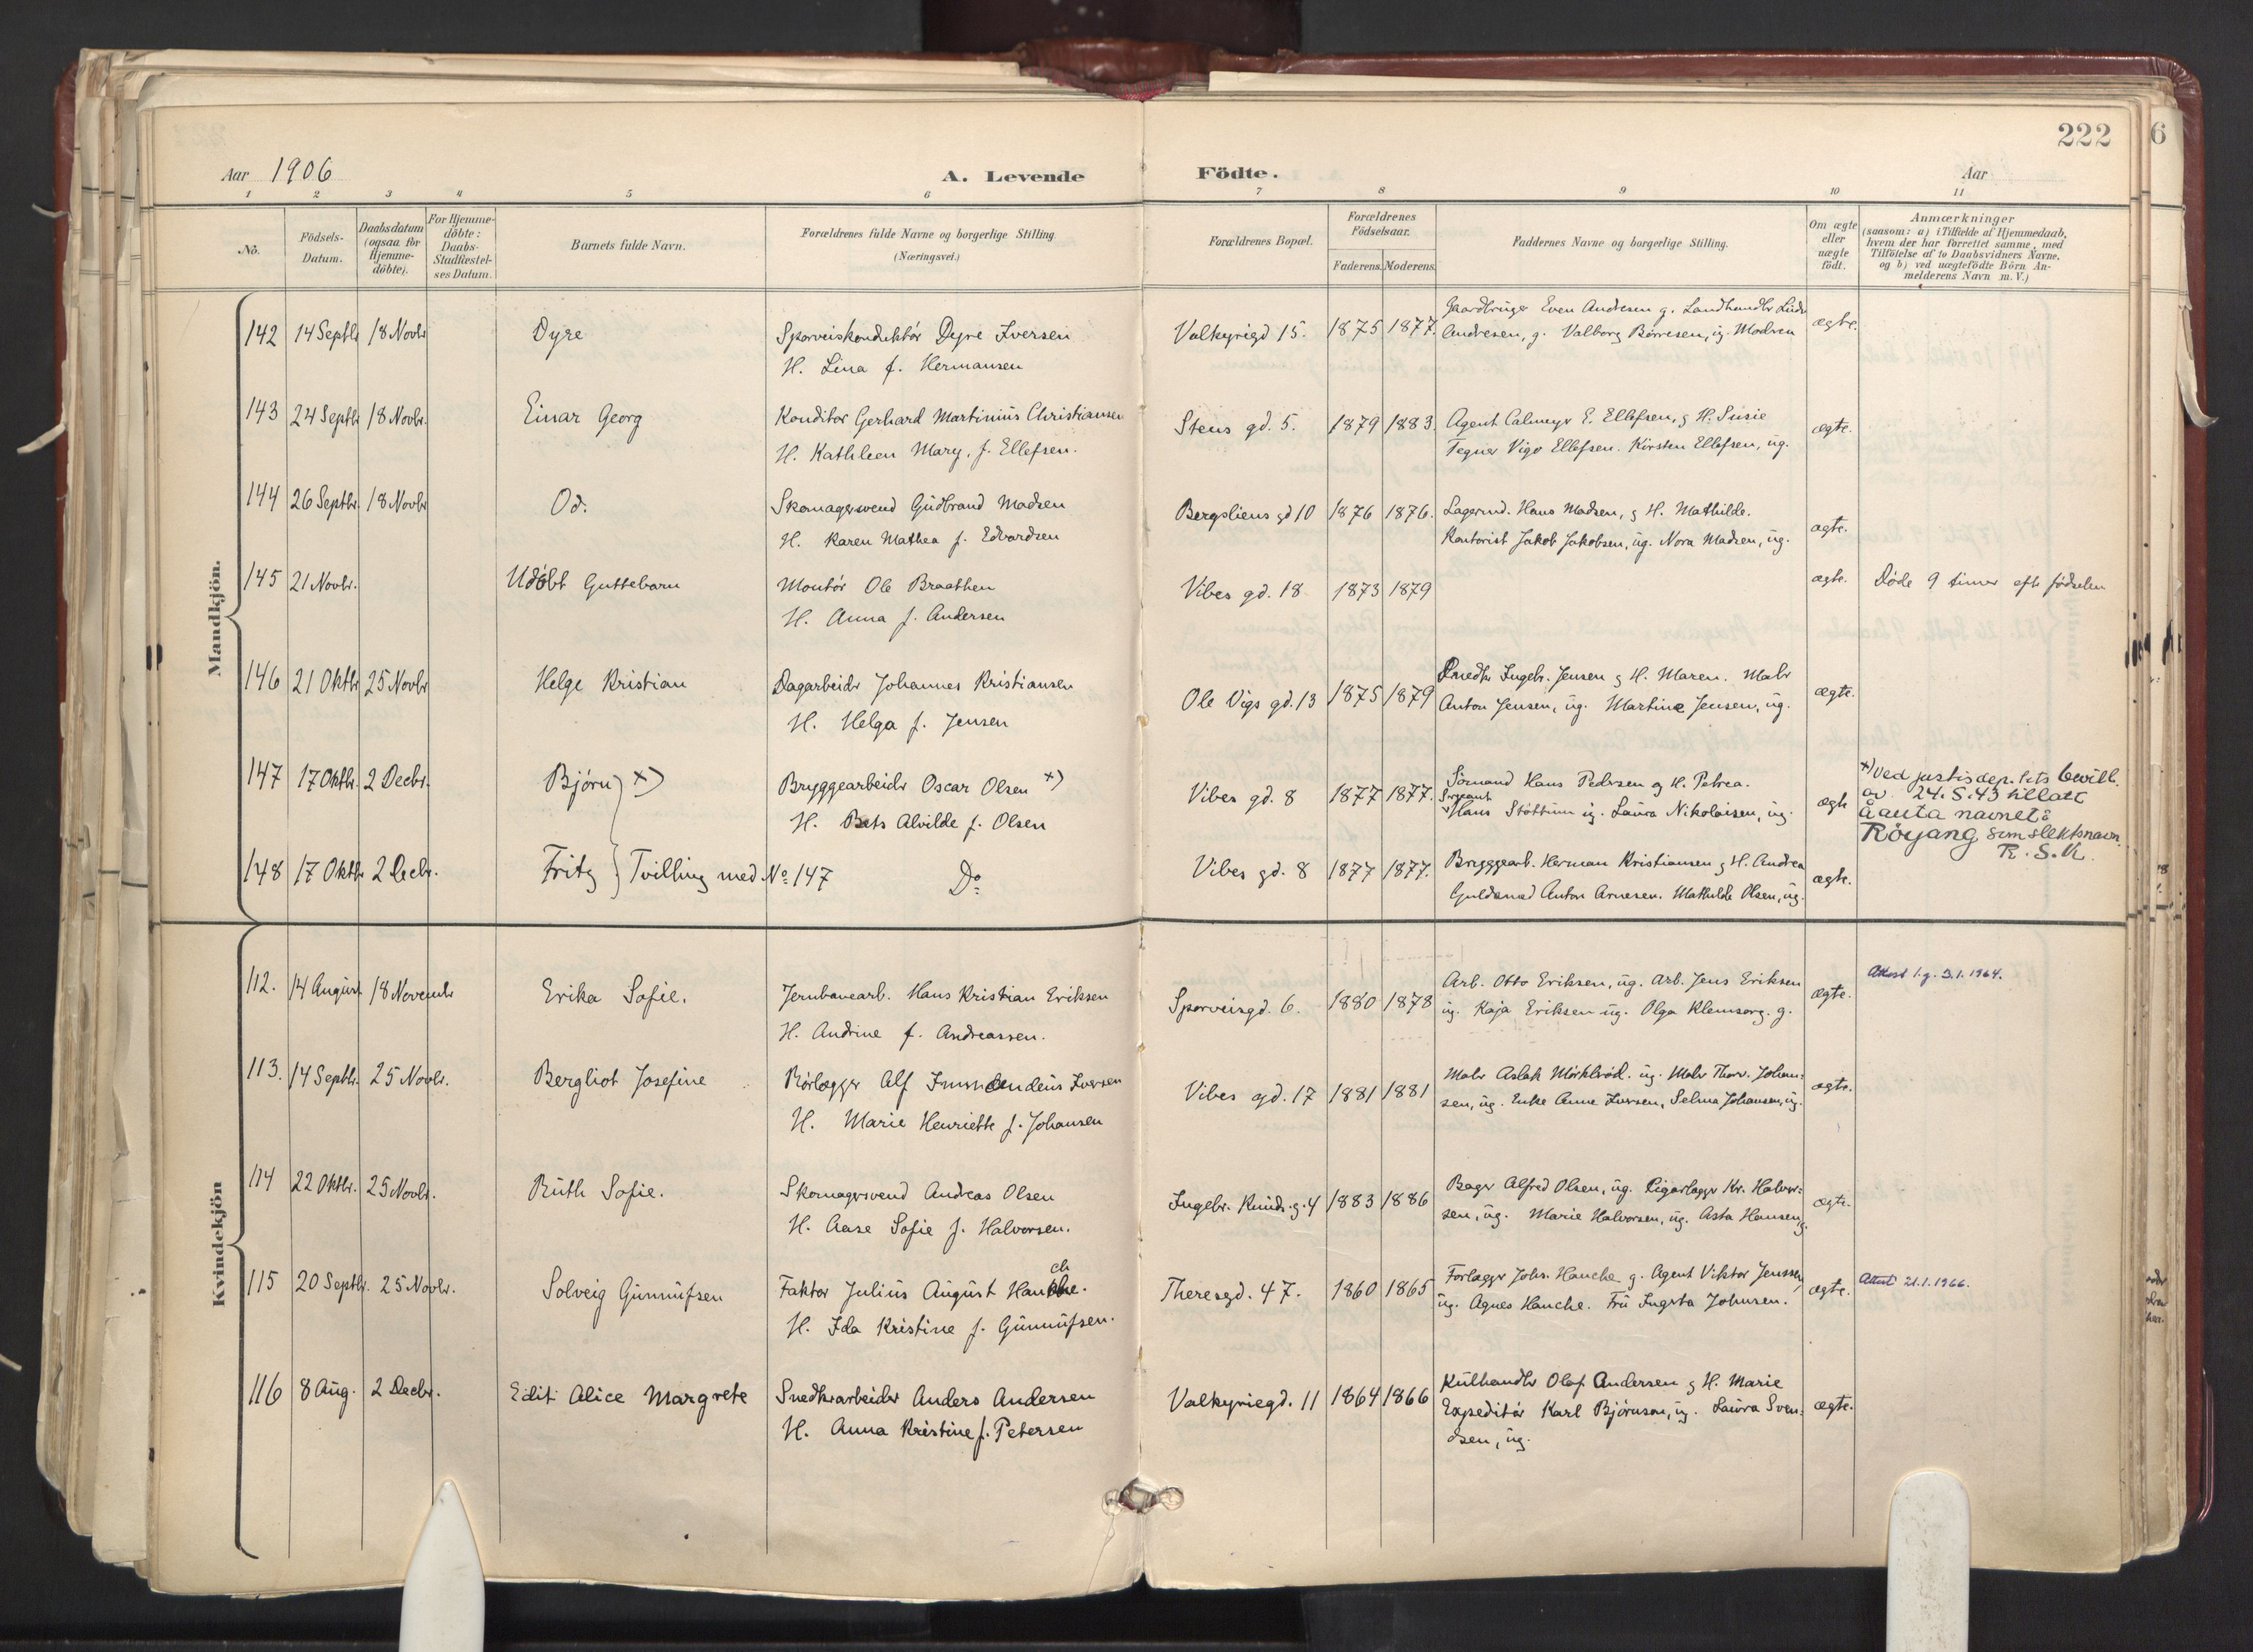 222
6
Aar 1906
A. Levende Födte.
Aar
1 2 3 4 5 6 7 8 9 10 11
No.
Födsels-Datum.
Daabsdatum (ogsaa for Hjemme-döbte).
For Hjemme-döbte: Daabs-Stadfæstel-ses Datum.
Barnets fulde Navn.
Forældrenes fulde Navne og borgerlige Stilling. (Næringsvei.)
Forældrenes Bopæl.
Forældrenes Födselsaar.
Faderens. Moderens.
Faddernes Navne og borgerlige Stilling.
Om ægte eller uægte födt.
Anmærkninger
(saasom: a) i Tilfælde af Hjemmedaab,
hvem der har forrettet samme, med
Tilföielse af to Daabsvidners Navne,
og b) ved uægtefödte Börn An-
melderens Navn m. V.)
Mandkjön.
142 14 Septbr 18 Novbr Dyre Sporveiskonduktör Dyre Iversen Valkyriegd 15. 1875 1877. Gaardbruger Even Andresen g. Landhandler
H. Lina f. Hermansen Andresen, g. Valborg Börresen, ug. Modren ægte.
143 24 Septbr 18 Novbr. Einar Georg Konditor Gerhard Martinius Christiansen Stens gd. 5. 1879 1883. Agent Calmeyr E. Ellefsen, g H. Susie ægte.
H. Kathleen Mary, f. Ellefsen. Tegner Vigo Ellefsen. Kirsten Ellefsen, ug.
144 26 Septbr. 18 Novbr Od. Skomagersvend Gudbrand Madsen Bergsliens gd 10 1876 1876. Lagermd. Hans Madsen, g H. Mathilde.
H. Karen Mathea f. Edvardsen Kontorist Jakob Jakobsen, ug. Nora Madsen, ug. ægte.
145 21 Novbr. Udöbt Guttebarn Montör Ole Braathen Vibes gd. 18 1873 1879 ægte. Döde 9 timer eft. födselen
H. Anna f. Andersen
146 21 Oktbr 25 Novbr Helge Kristian Dagarbeider Johannes Kristiansen Ole Vigs gd. 13 1875 1879 Snedkr Ingebr. Jensen g H. Maren. Maler
H. Helga f. Jensen Anton Jensen, ug. Martine Jensen, ug. ægte.
147 17 Oktbr. 2 Decbr. Björn x) Bryggearbeider Oscar Olsen x) Vibes gd. 8 1877 1877. Sömand Hans Pedersen og H. Petrea.
H. Bets Alvilde f. Olsen Hans Stöttum ug. Laura Nikolaisen, ug. ægte
x) Ved justisdep.tets bevill.
av 24.5.43 tillatt
å anta navnet:
Röyang som slektsnavn.
R.S.K.
148 17 Oktbr 2 Decbr. Fritz Tvilling med No 147 Do Vibes gd. 8 1877 1877. Bryggearb. Herman Kristiansen g H. Andrea ægte.
Guldsmed Anton Arnesen. Mathilde Olsen, ug.
Kvindekjön
112. 14 August 18 Novembr Erika Sofie. Jernbanearb. Hans Kristian Eriksen Sporveisgd. 6. 1880 1878 Arb. Otto Eriksen, ug. Arb. Jens Eriksen ægte. Attest 1.g. 3.1.1964.
H. Andrine f. Andreassen. ug. Kaja Eriksen ug. Olga Klemsorg. g.
113. 14 Septbr. 25 Novbr. Bergliot Josefine Rörlægger Alf Iversen Vibes gd. 17 1881 1881 Maler Aslak Mörkbröd. ug. Maler Thorv. Johan- ægte.
H. Marie Henriette f. Johansen sen, ug. Enke Anne Iversen, Selma Johansen, ug.
114 22 Oktbr. 25 Novbr. Ruth Sofie. Skomagersvend Andreas Olsen Ingebr. Knuds. g. 4 1883 1886 Bager Alfred Olsen, ug. Rigarlagger Kr. Halvor- ægte.
H. Aase Sofie f. Halvorsen. sen, ug. Marie Halvorsen, ug. Asta Hansen, g.
115 20 Septbr. 25 Novbr. Solveig Gunnufsen Faktor Julius August Hauche. Theresgd. 47. 1860 1865 Forlægger Johs. Hauche g. Agent Viktor Jenssen, ægte. Attest 21.1.1966.
H. Ida Kristine f. Gunnufsen. ug. Agnes Hauche. Fru Ingeta Johnsen.
116 8 Aug. 2 Decbr. Edit Alice Margrete Snedkerarbeider Anders Andersen Valkyriegd. 11 1864 1866 Kulhandler Olaf Andersen g H. Marie
H. Anna Kristine f. Petersen Expeditör Karl Björnson, ug. Laura Sven- ægte.
dsen, ug.